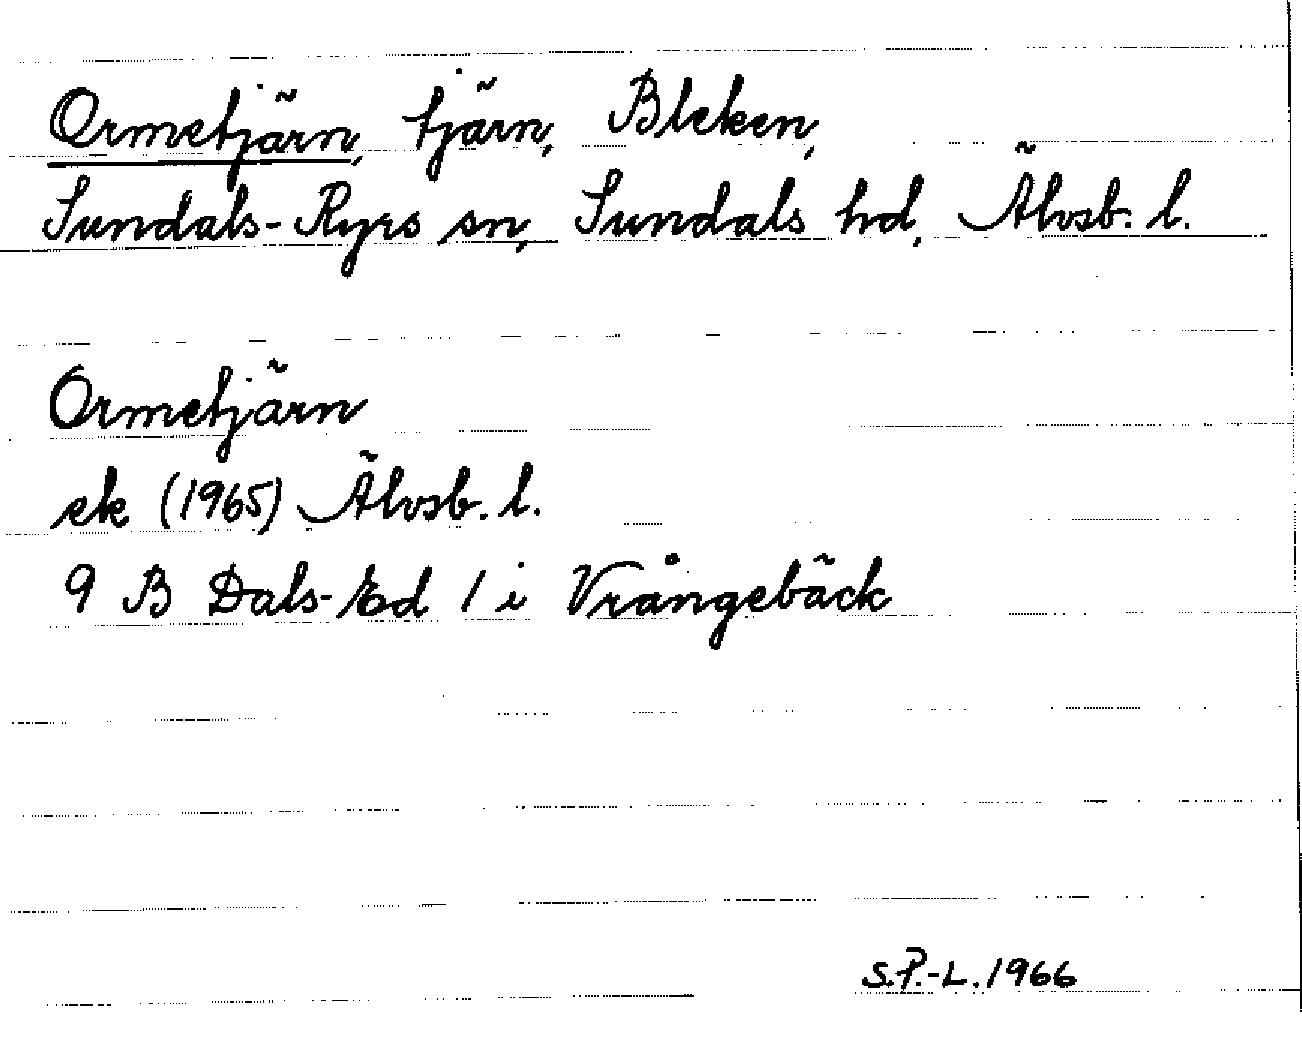 Ormetjärn, tjärn, Bleken,
Sundals-Ryrs sn, Sundals hd, Älvsb. l.
Ormetjärn
ek (1965) Älvsb. l.
9 B Dals-Ed 1 i Vrångebäck
S.P.-L. 1966